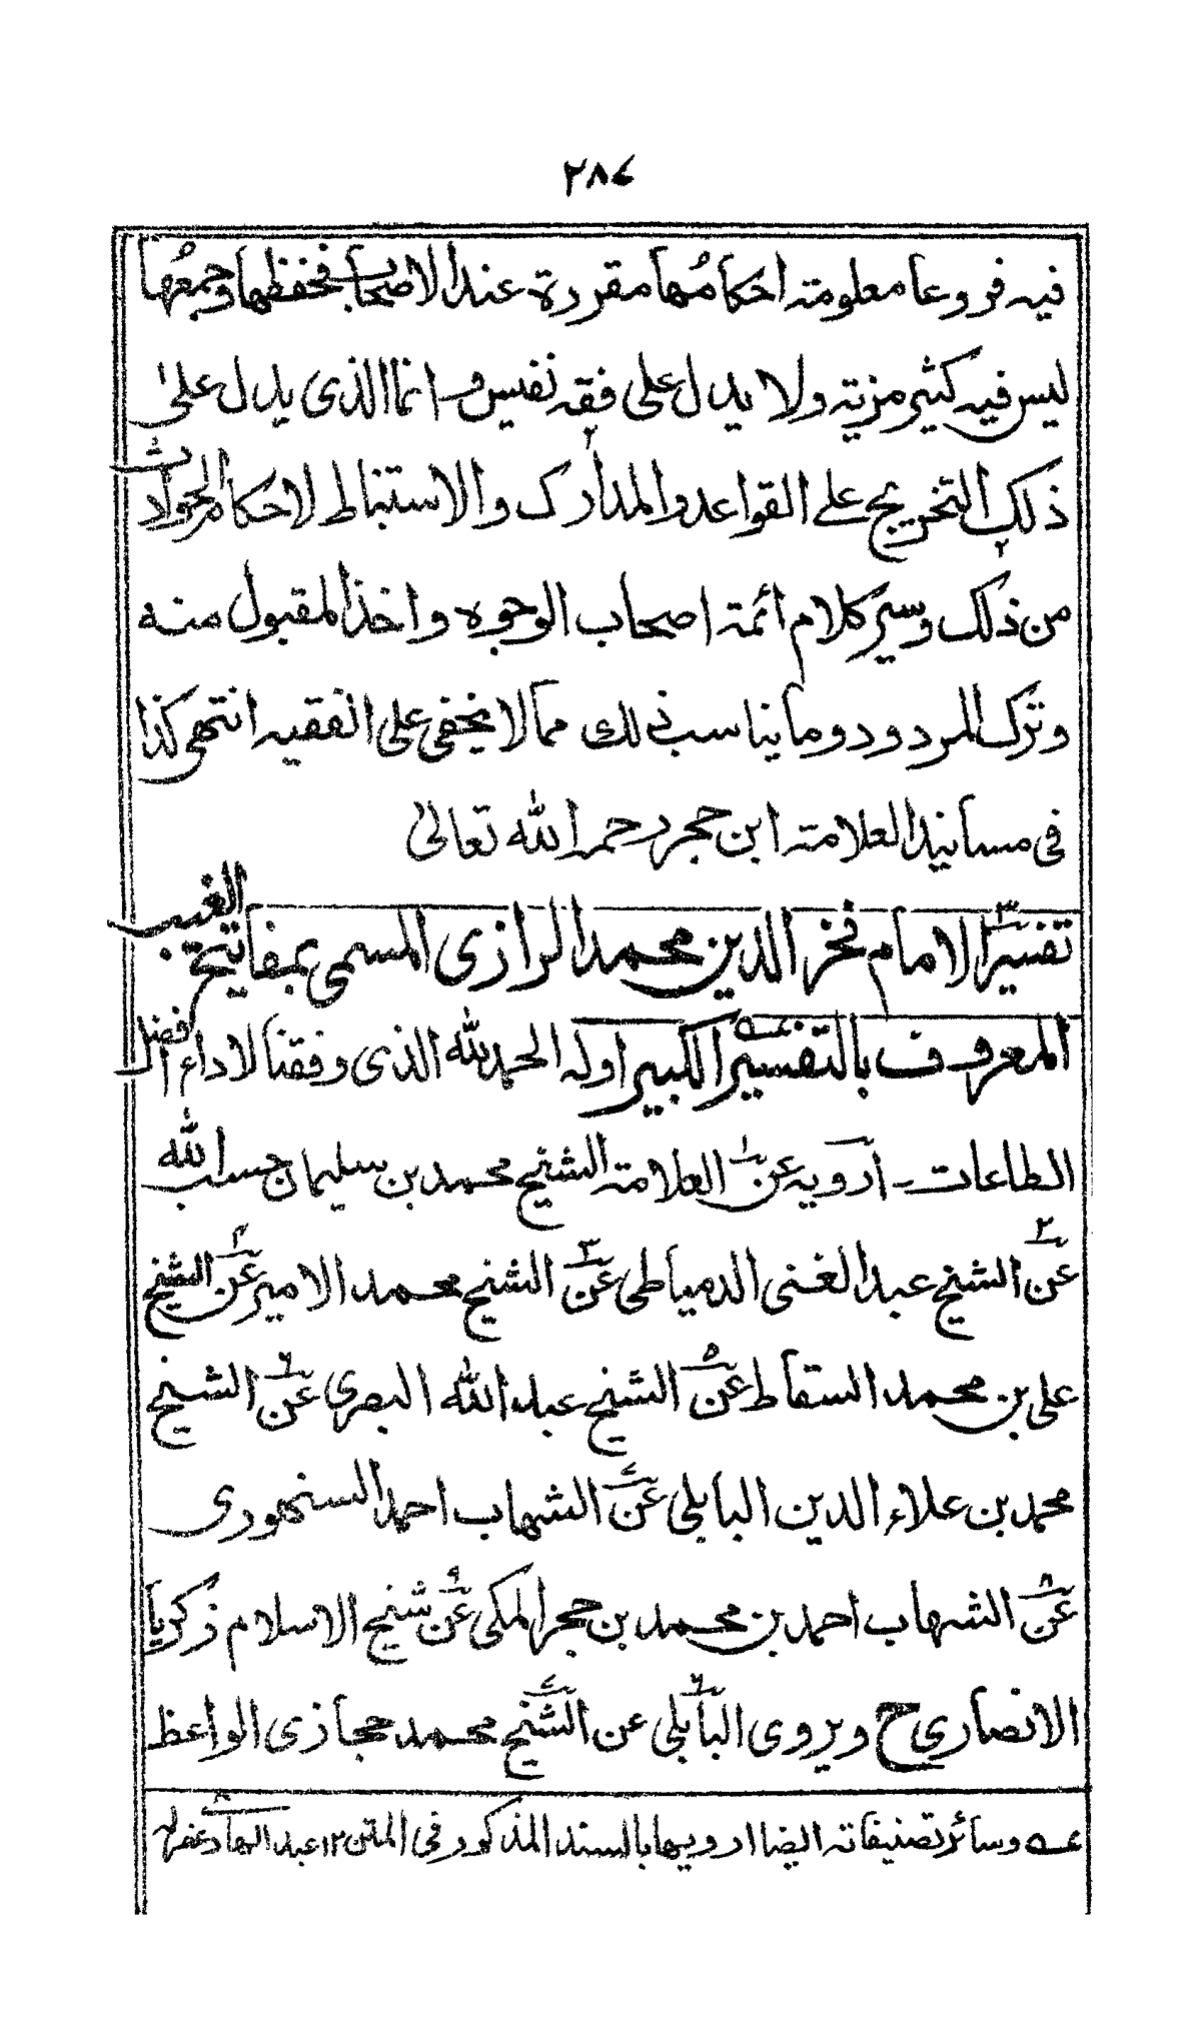 ٢٨٤
فيه فروعا معلومة احكامُها مقررة عند الاصحاب فحفظها وجمعُها
ليس فيه كثير مزية ولا يدل على فقه نفيس و انما الذى يدل على
ذلك التخريج على القواعد والمدارك والاستنباط لاحكام الحوادث
من ذلك وسير كلام ائمة اصحاب الوجوه واخذ المقبول منه
وترك المردود وما يناسب ذلك مما لا يخفى على الفقيه انتهى كذا
فى مسانيد العلامة ابن حجر رحمه الله تعالىٰ
تفسير الامام فخر الدين محمد الرازى المسمى بمفاتيح الغيب
المعروف بالتفسير الكبير اوله الحمد لله الذى وفقنا لاداء افضل
الطاعات ـ أرويه عن ١ العلامة الشيخ محمد بن سليمان حسب الله
عن ٢ الشيخ عبد الغنى الدمياطى عن ٣ الشيخ محمد الامير عن ٤ الشيخ
على بن محمد السقاط عن ٥ الشيخ عبد الله البصرى عن ٦ الشيخ
محمد بن علاء الدين البابلى عن ٧ الشهاب احمد السنهورى
عن ٨ الشهاب احمد بن محمد بن حجر المكى عن ٩ شيخ الاسلام زكريا
الانصارى ح ويروى البابلى عن الشيخ محمد حجازى الواعظ
عه وسائر تصنيفاته ايضا ارويها بالسند المذكور فى المتن ١٢ عبد الهادى غفر له